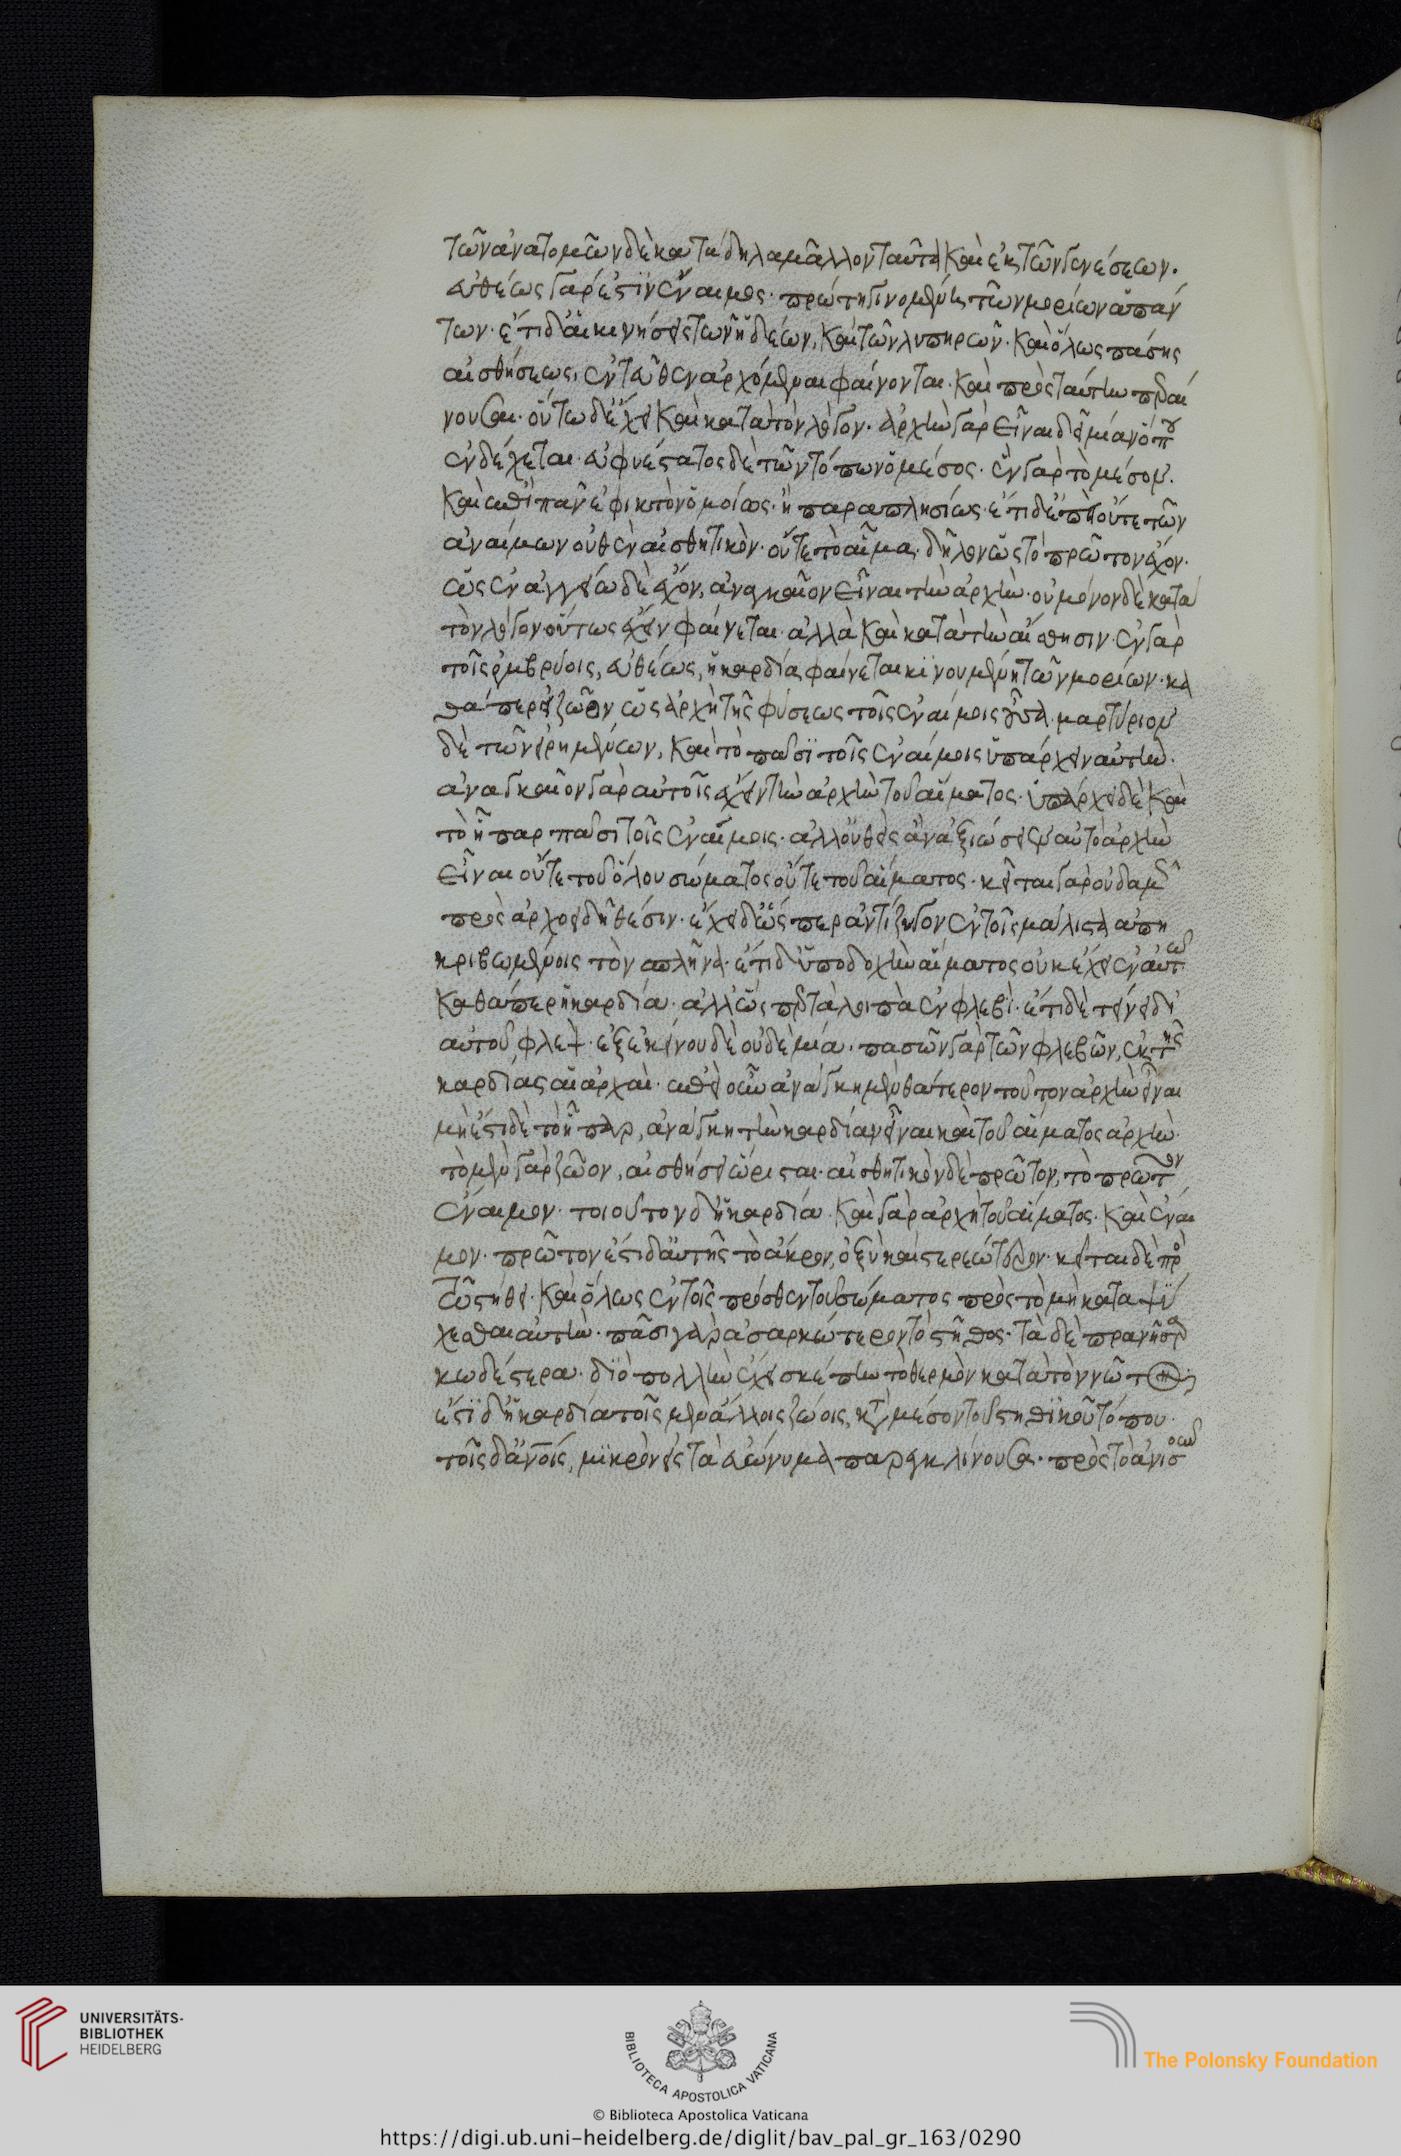 τῶν ἀνατομῶν δὲ κατάδηλα μᾶλλον ταῦτα καὶ ἐκ τῶν γενέσεων.
εὐθέως γάρ ἐστιν ἔναιμος· πρώτη γινομένη τῶν μορίων ἁπάν
των· ἔτι δ' αἱ κινήσεις τῶν ἡδέων, καὶ τῶν λυπηρῶν· καὶ ὅλως πάσης
αἰσθήσεως, ἐντεῦθεν ἀρχόμεναι φαίνονται· καὶ πρὸς ταύτην περαί
νουσαι. οὕτω δ' ἔχει καὶ κατὰ τὸν λόγον. ἀρχὴν γὰρ εἶναι δεῖ μίαν ὅπου
ἐνδέχεται. εὐφυέστατος δὲ τῶν τόπων ὁ μέσος. ἓν γὰρ τὸ μέσον.
καὶ ἐπὶ πᾶν ἐφικτὸν ὁμοίως· ἢ παραπλησίως. ἔτι δ' ἐπεὶ οὔτε τῶν
ἀναίμων οὐθὲν αἰσθητικὸν· οὔτε τὸ αἷμα. δῆλον ὡς τὸ πρῶτον ἔχον.
ὡς ἐν ἀγγείῳ δὲ ἔχον, ἀναγκαῖον εἶναι τὴν ἀρχὴν. οὐ μόνον δὲ κατὰ
τὸν λόγον οὕτως ἔχειν φαίνεται. ἀλλὰ καὶ κατὰ τὴν αἴσθησιν. ἐν γὰρ
τοῖς ἐμβρύοις, εὐθέως, ἡ καρδία φαίνεται κινουμένη τῶν μορίων. κα
θάπερ εἰ ζῶον ὡς ἀρχὴ τῆς φύσεως τοῖς ἐναίμοις οὖσα. μαρτύριον
δὲ τῶν εἰρημένων, καὶ τὸ πᾶσι τοῖς ἐναίμοις ὑπάρχειν αὐτὴν.
ἀναγκαῖον γὰρ αὐτοῖς ἔχειν τὴν ἀρχὴν τοῦ αἵματος. ὑπάρχει δὲ καὶ
τὸ ἧπαρ πᾶσι τοῖς ἐναίμοις. ἀλλ' οὐθεὶς ἂν ἀξιώσειεν αὐτὸ ἀρχὴν
εἶναι οὔτε τοῦ ὅλου σώματος οὔτε τοῦ αἵματος. κεῖται γὰρ οὐδαμῶς
πρὸς ἀρχοειδῆ θέσιν. ἔχει δ' ὥσπερ ἀντίζυγον ἐν τοῖς μάλιστα ἀπη
κριβωμένοις τὸν σπλῆνα. ἔτι δ' ὑποδοχὴν αἵματος οὐκ ἔχει ἐν αὑτῷ
καθάπερ ἡ καρδία. ἀλλ' ὥσπερ τὰ λοιπὰ ἐν φλεβὶ. ἔτι δὲ τείνει δι'
αὐτοῦ φλεψ. ἐξ ἐκείνου δὲ οὐδεμία. πασῶν γὰρ τῶν φλεβῶν, ἐκ τῆς
καρδίας αἱ ἀρχαὶ. ἐπεὶ οὖν ἀνάγκη μὲν θάτερον τούτων ἀρχὴν εἶναι
μή ἐστι δὲ τὸ ἧπαρ, ἀνάγκη τὴν καρδίαν εἶναι καὶ τοῦ αἵματος ἀρχὴν.
τὸ μὲν γὰρ ζῶον, αἰσθήσει ὥρισται. αἰσθητικὸν δὲ πρῶτον, τὸ πρῶτον
ἔναιμον. τοιοῦτον δ' ἡ καρδία. καὶ γὰρ ἀρχὴ τοῦ αἵματος. καὶ ἔναι
μον. πρῶτον ἔστι δ' αὐτῆς τὸ ἄκρον, ὀξὺ καὶ στερεώτερον. κεῖται δὲ πρὸς
τῷ στήθει. καὶ ὅλως ἐν τοῖς πρόσθεν τοῦ σώματος πρὸς τὸ μὴ καταψύ
χεσθαι αὐτὴν. πᾶσι γὰρ ἀσαρκώτερον τὸ στῆθος. τὰ δὲ πρανῆ σαρ
κωδέστερα. διὸ πολλὴν ἔχει σκέπην τὸ θερμὸν κατὰ τὸν νῶτον
ἔστι δ' ἡ καρδία τοῖς μὲν ἄλλοις ζώοις, κατὰ μέσον τοῦ στηθικοῦ τόπου.
τοῖς δ' ἀνοις, μικρὸν εἰς τὰ εὐώνυμα παρεγκλίνουσα. πρὸς τὸ ἀνισοῦν
UNIVERSITÄTS-
BIBLIOTHEK
HEIDELBERG
BIBLIOTECA APOSTOLICA VATICANA
The Polonsky Foundation
© Biblioteca Apostolica Vaticana
https://digi.ub.uni-heidelberg.de/diglit/bav_pal_gr_163/0290